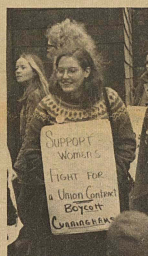 SUPPORT
WOMEN'S
FIGHT FOR
a Union Contract
BOYCOTT
CUNNINGHAMS